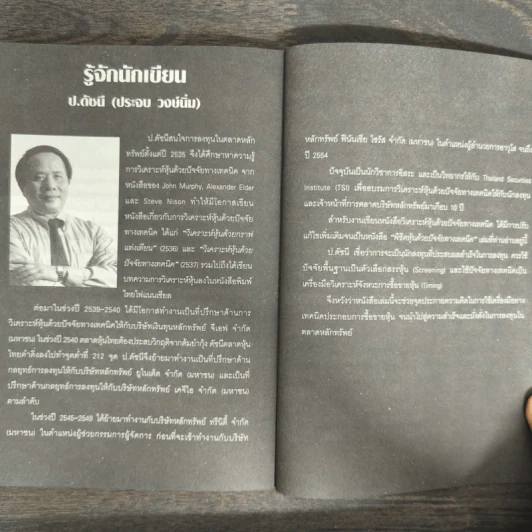 รู้จักนักเขียน
ป.ดัชนี (ประจบ วงษ์นิ่ม)
ป.ดัชนีสนใจการลงทุนในตลาดหลัก
ทรัพย์ตั้งแต่ปี 2535 จึงได้ศึกษาหาความรู้
การวิเคราะห์หุ้นด้วยปัจจัยทางเทคนิค จาก
หนังสือของ John Murphy, Alexander Elder
และ Steve Nison ทำให้มีโอกาสเขียน
หนังสือเกี่ยวกับการวิเคราะห์หุ้นด้วยปัจจัย
ทางเทคนิค ได้แก่ "วิเคราะห์หุ้นด้วยกราฟ
แท่งเทียน" (2536) และ "วิเคราะห์หุ้นด้วย
ปัจจัยทางเทคนิค" (2537) รวมไปถึงได้เขียน
บทความการวิเคราะห์หุ้นลงในหนังสือพิมพ์
ไทยไฟแนนเชียล
ต่อมาในช่วงปี 2539-2540 ได้มีโอกาสทำงานเป็นที่ปรึกษาด้านการ
วิเคราะห์หุ้นด้วยปัจจัยทางเทคนิคให้กับบริษัทเงินทุนหลักทรัพย์ จีเอฟ จำกัด
(มหาชน) ในช่วงปี 2540 ตลาดหุ้นไทยต้องประสบวิกฤติจากต้มยำกุ้ง ดัชนีตลาดหุ้น
ไทยดำดิ่งลงไปทำจุดต่ำที่ 212 จุด ป.ดัชนีจึงย้ายมาทำงานเป็นที่ปรึกษาด้าน
กลยุทธ์การลงทุนให้กับบริษัทหลักทรัพย์ ยูไนเต็ด จำกัด (มหาชน) และเป็นที่
ปรึกษาด้านกลยุทธ์การลงทุนให้กับบริษัทหลักทรัพย์ เคจีไอ จำกัด (มหาชน)
ตามลำดับ
ในช่วงปี 2545-2549 ได้ย้ายมาทำงานกับบริษัทหลักทรัพย์ ทรีนีตี้ จำกัด
(มหาชน) ในตำแหน่งผู้ช่วยกรรมการผู้จัดการ ก่อนที่จะเข้าทำงานกับบริษัท
หลักทรัพย์ ฟินันเซีย ไซรัส จำกัด (มหาชน) ในตำแหน่งผู้อำนวยการอาวุโส จนถึง
ปี 2554
ปัจจุบันเป็นนักวิชาการอิสระ และเป็นวิทยากรให้กับ Thailand Securities
Institute (TSI) เพื่ออบรมการวิเคราะห์หุ้นด้วยปัจจัยทางเทคนิคให้กับนักลงทุน
และเจ้าหน้าที่การตลาดบริษัทหลักทรัพย์มาเกือบ 10 ปี
สำหรับงานเขียนหนังสือวิเคราะห์หุ้นด้วยปัจจัยทางเทคนิค ได้มีการปรับ
แก้ไขเพิ่มเติมจนเป็นหนังสือ "พิชิตหุ้นด้วยเทคนิค" เล่มที่ท่านอ่านชุดนี้
ป.ดัชนี เชื่อว่าการจะเป็นนักลงทุนที่ประสบผลสำเร็จในการลงทุน ควรใช้
ปัจจัยพื้นฐานเป็นตัวเลือกสรรหุ้น (Screening) และใช้ปัจจัยทางเทคนิคเป็น
เครื่องมือวิเคราะห์จังหวะการซื้อขายหุ้น (Timing)
จึงหวังว่าหนังสือเล่มนี้จะช่วยจุดประกายความคิดในการใช้เครื่องมือทาง
เทคนิคประกอบการซื้อขายหุ้น จนนำไปสู่ความสำเร็จและมั่งคั่งในการลงทุนใน
ตลาดหลักทรัพย์